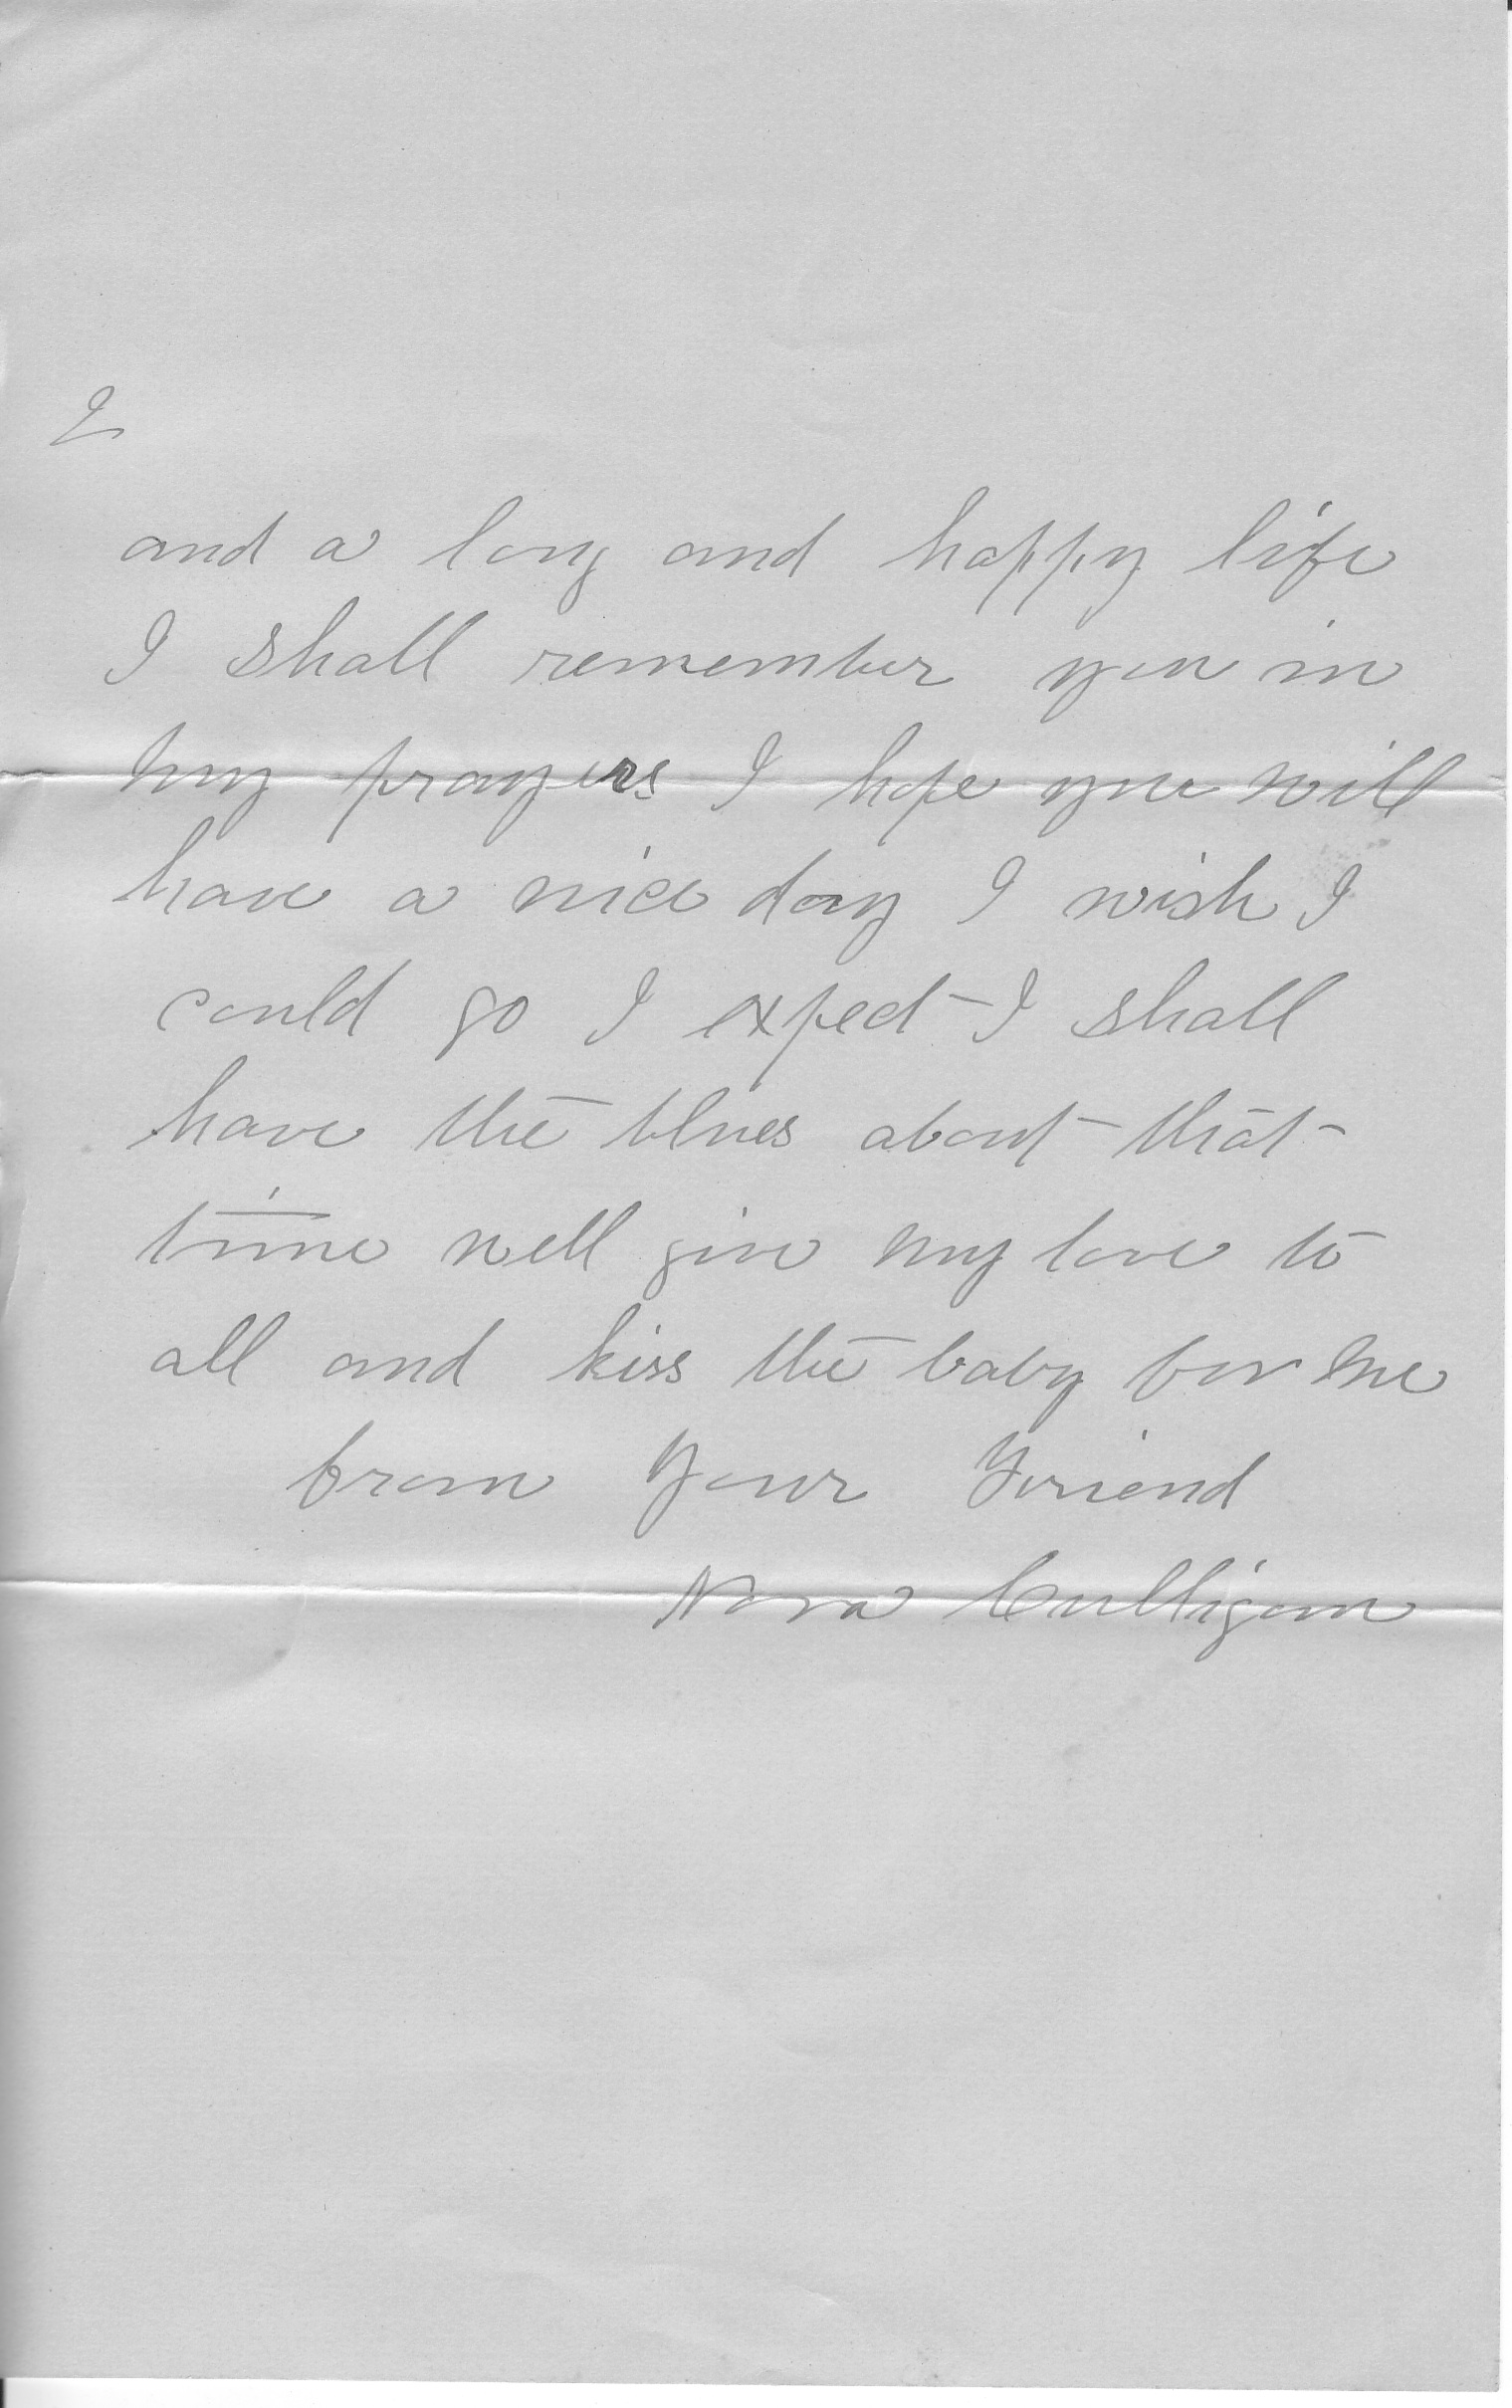 2
and a long and happy life
I shall remember you in
my prayers I hope you will
have a nice day I wish I
could go I expect I shall
have the blues about that
time well give my love to
all and kiss the baby for me
from Your Friend
Nora Culligan